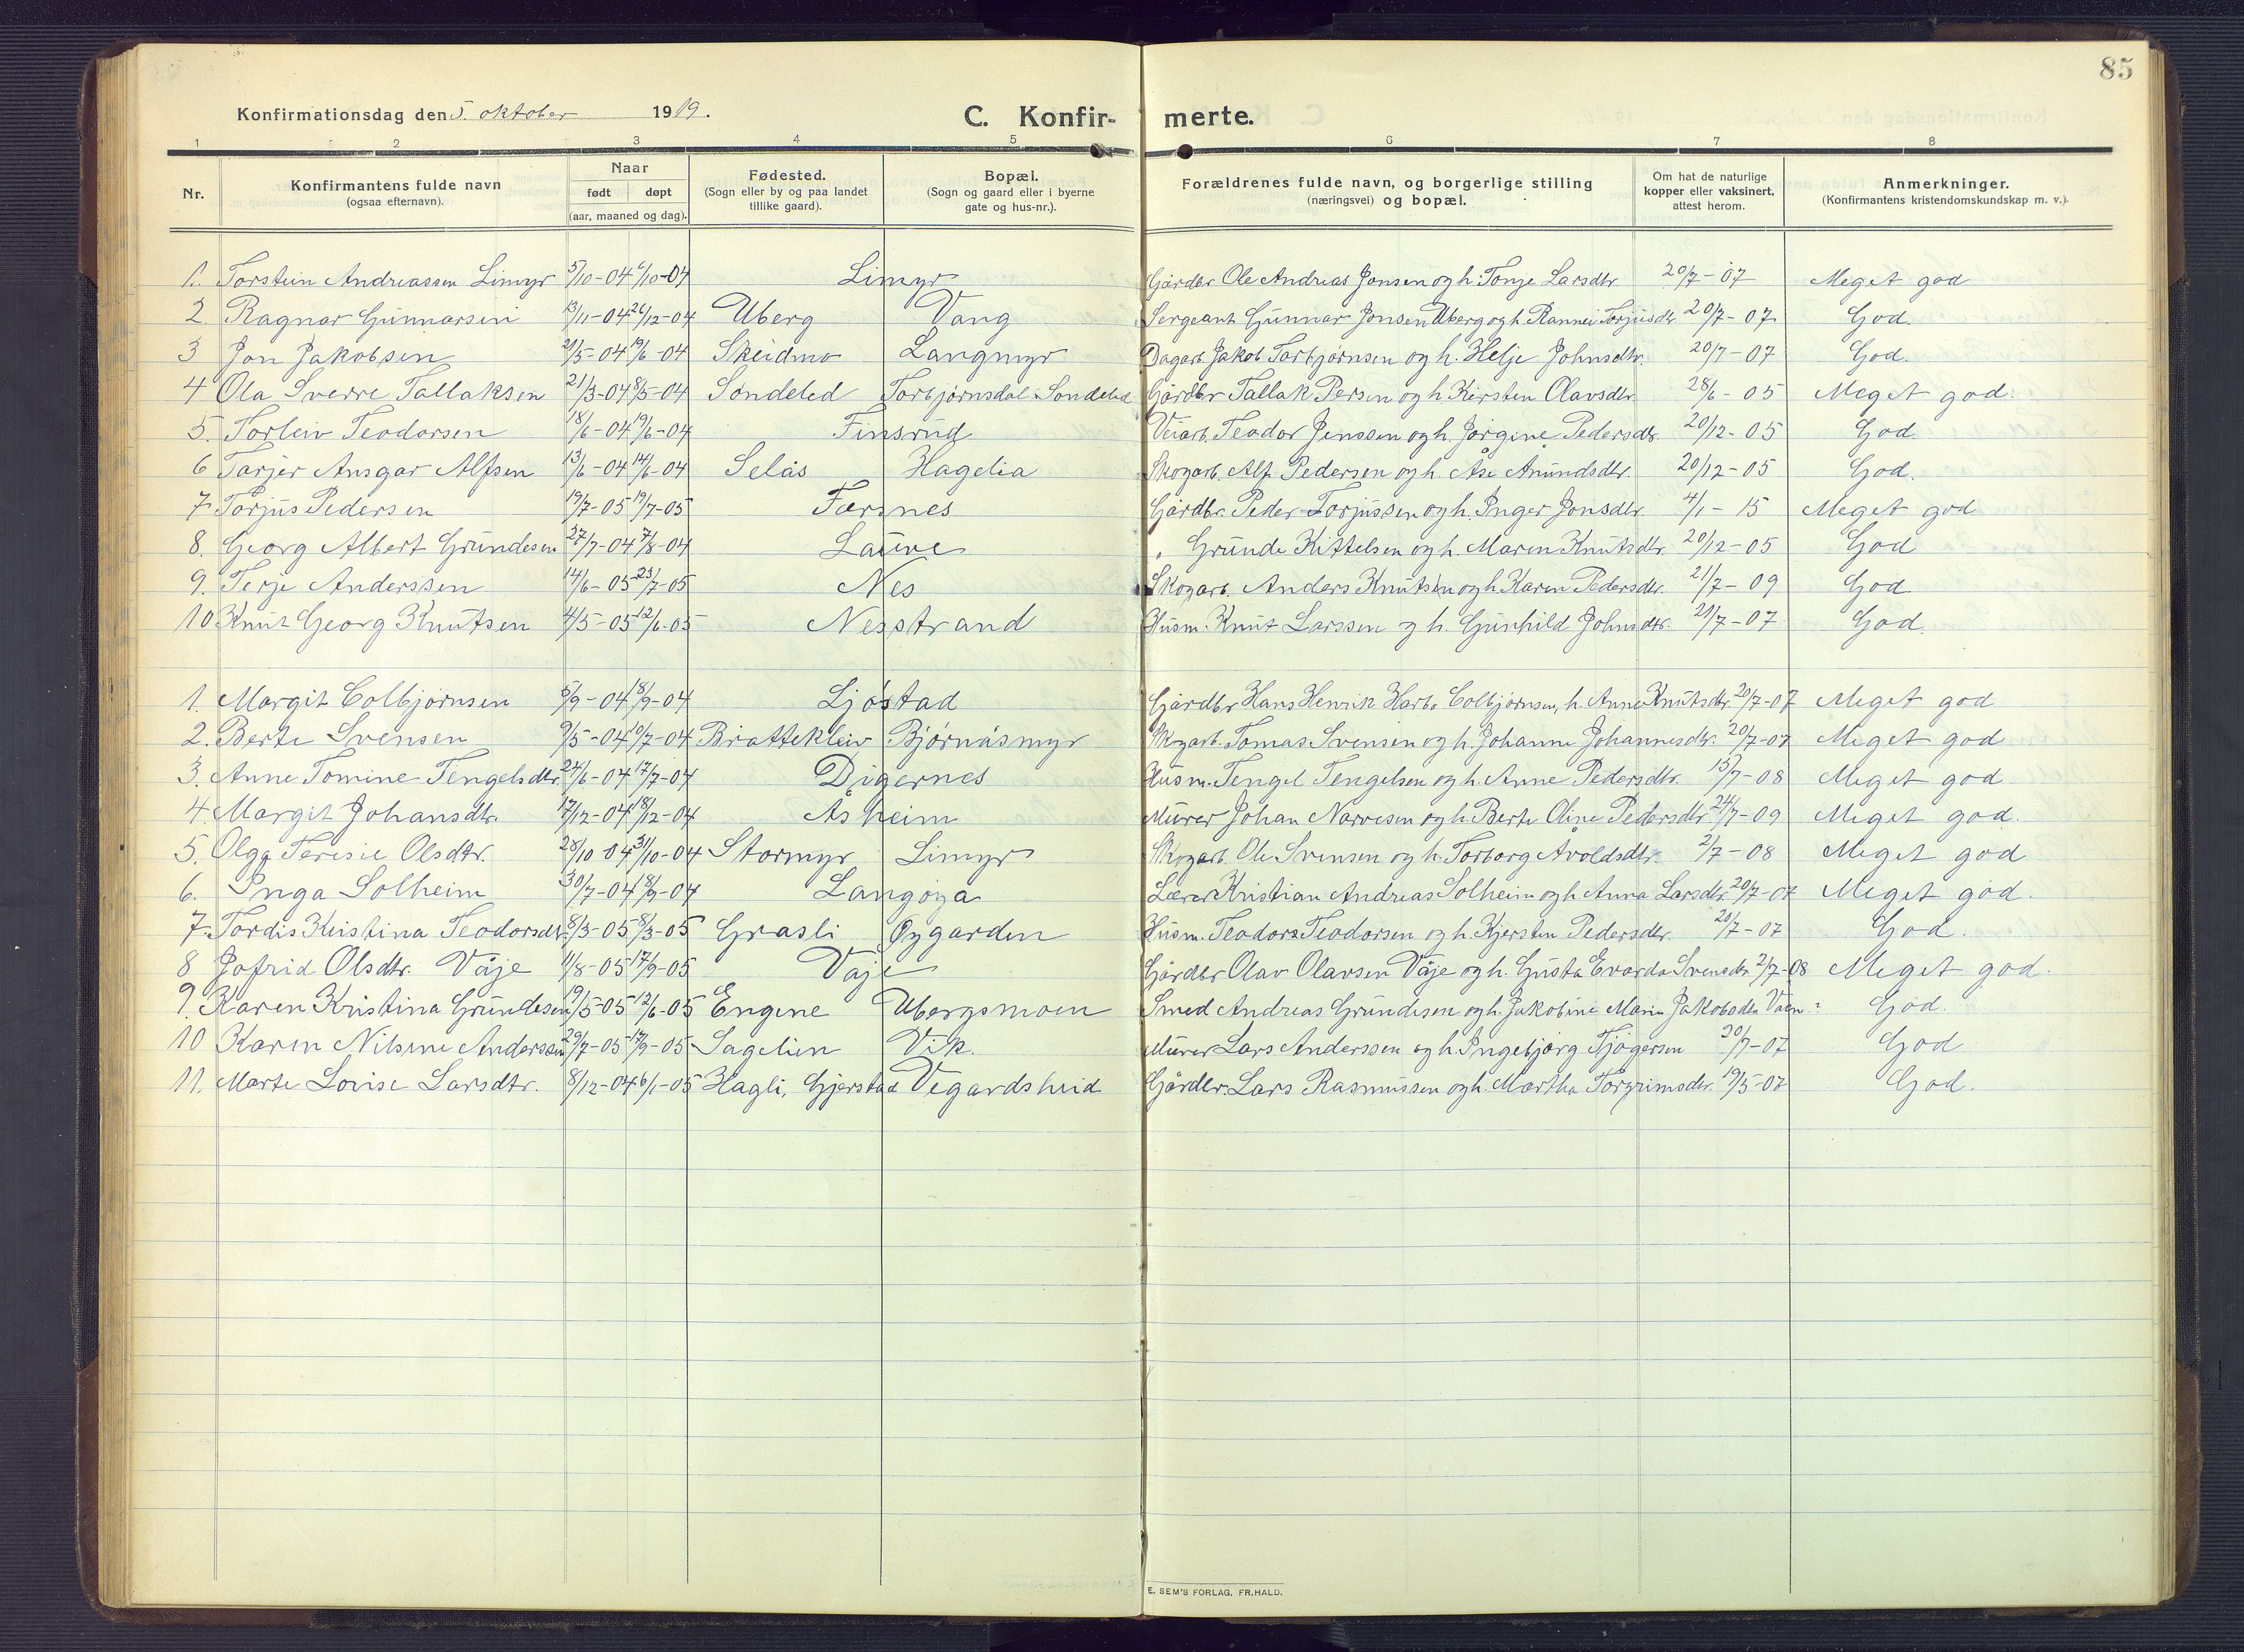 85
Konfirmationsdag den 5. oktober 1919.
C. Konfir- merte.
1 2 3 4 5 6 7 8
Nr.
Konfirmantens fulde navn
(ogsaa efternavn).
Naar
født døpt
(aar, maaned og dag).
Fødested.
(Sogn eller by og paa landet
tillike gaard).
Bopæl.
(Sogn og gaard eller i byerne
gate og hus-nr.).
Forældrenes fulde navn, og borgerlige stilling
(næringsvei) og bopæl.
Om hat de naturlige
kopper eller vaksinert,
attest herom.
Anmerkninger.
(Konfirmantens kristendomskundskap m. v.).
1. Torstein Andreassen Limyr 5/10-04 6/10-04 Limyr Gårdbr Ole Andreas Jonsen og h. Tonje Larsdtr 20/7-07 Meget god
2. Ragnar Gunnarsen 13/11-04 26/12-04 Uberg Vang Sergeant Gunnar Jonsen Uberg og h. Rannei Torjusdtr 20/7-07 God.
3 Jon Jakobsen 21/5-04 19/6-04 Skeidmo Langmyr Dagarb. Jakob Torbjørnsen og h. Helje Johnsdtr. 20/7-07 God.
4 Ola Sverre Tallaksen 21/3-04 8/5-04 Søndeled Torbjørnsdal i Søndeled Gårdbr Tallak Persen og h. Kirsten Olavsdtr. 28/6-05 Meget god.
5. Torleiv Teodorsen 18/6-04 19/6-04 Finsrud Veiarb. Teodor Jenssen og h. Jørgine Pedersdtr. 20/12-05 God.
6 Tarjer Ansgar Alfsen 13/6-04 14/6-04 Selås Hagelia Skogarb. Alf Pedersen og h. Åse Anundsdtr. 20/12-05 God.
7 Torjus Pedersen 19/7-05 19/7-05 Færsnes Gårdbr. Peder Torjussen og h. Inger Jonsdtr. 4/1-15 Meget god
8. Georg Albert Grundesen 27/7-04 7/8-04 Lauve " Grunde Kittelsen og h. Maren Knutsdtr. 20/12-05 God
9. Terje Anderssen 14/6-05 23/7-05 Nes Skogarb. Anders Knutsen og h. Karen Pedersdtr. 21/7-09 God
10 Knut Georg Knutsen 4/5-05 12/6-05 Nesstrand Husm. Knut Larssen og h. Gunhild Johnsdtr. 21/7-07 God.
1. Margit Colbjørnsen 5/9-04 18/9-04 Ljøstad Gårdbr Hans Henrik Harbo Colbjørnsen, h. Anne Knutsdtr. 20/7-07 Meget god
2. Berte Svensen 9/5-04 10/7-04 Brattekleiv Bjørnåsmyr Skogarb. Tomas Svensen og h. Johanne Johannesdtr. 20/7-07 Meget god
3. Anne Tomine Tengelsdtr. 24/6-04 17/7-04 Digernes Husm. Tengel Tengelsen og h. Anne Pedersdtr. 15/7-08 Meget god
4. Margit Johansdtr. 17/12-04 18/12-04 Åsheim Murer Johan Narvesen og h. Berte Oline Pedersdtr 24/7-09 Meget god.
5. Olga Teresie Olsdtr. 28/10-04 31/10-04 Stormyr Limyr Skogarb. Ole Svensen og h. Torborg Avoldsdtr. 2/7-08 Meget god
6. Inga Solheim 30/7-04 18/9-04 Langøya Lærer Kristian Andreas Solheim og h. Anna Larsdtr. 20/7-07 Meget god.
7. Tordis Kristina Teodorsdtr. 8/3-05 8/3-05 Grasli Øygarden Husm. Teodor Teodorsen og h. Kjersten Pedersdtr. 20/7-07 God.
8 Jofrid Olsdtr. Våje 11/8-05 17/9-05 Våje Gårdbr Olav Olavsen Våje og h. Gusta Evarda Svensdtr. 2/7-08 Meget god.
9. Karen Kristina Grundesen 19/5-05 12/6-05 Engene Ubergsmoen Smed Andreas Grundesen og h. Jakobine Marie Jakobsdtr. Våen ? God.
10 Karen Nilsine Anderssen 29/7-05 17/9-05 Sagelien Vik. Murer Lars Anderssen og h. Ingebjørg Tjøgersen 20/7-07 God
11. Marte Lovise Larsdtr. 8/12-04 6/1-05 Hagli, Gjerstad Vegardsheid Gårdbr. Lars Rasmussen og h. Martha Torgrimsdtr. 19/5-07 God.
E. SEM'S FORLAG, FR.HALD.